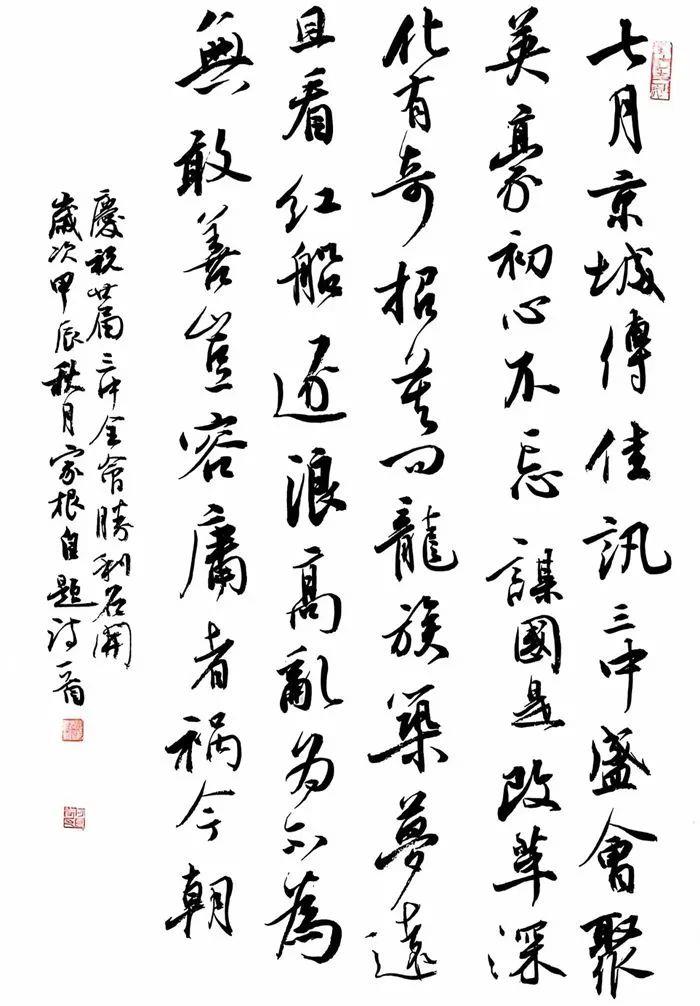 七月京城傳佳訊三中盛會聚
英豪初心不忘謀國是改革深
化有奇招莫问龍族築夢遠
且看红船逐浪高亂为不為
無敢善豈容庸者祸今朝
慶祝廿届三中全會勝利召開
歲次甲辰秋月家根自題诗一首